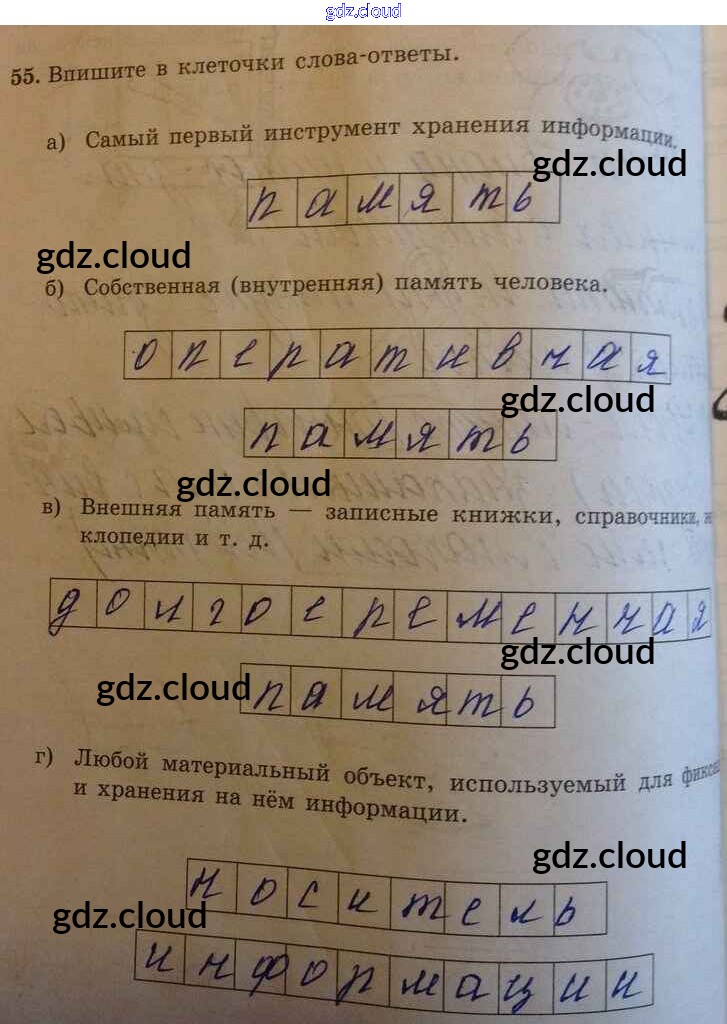 gdz.cloud
55. Впишите в клеточки слова-ответы.
а) Самый первый инструмент хранения информации.
gdz.cloud
память
gdz.cloud
б) Собственная (внутренняя) память человека.
оперативная
gdz.cloud
память
gdz.cloud
в) Внешняя память — записные книжки, справочники,
клопедии и т. д.
долгоеременная
gdz.cloud
gdz.cloud
память
г) Любой материальный объект, используемый для фикса
и хранения на нём информации.
gdz.cloud
носитель
gdz.cloud
информации